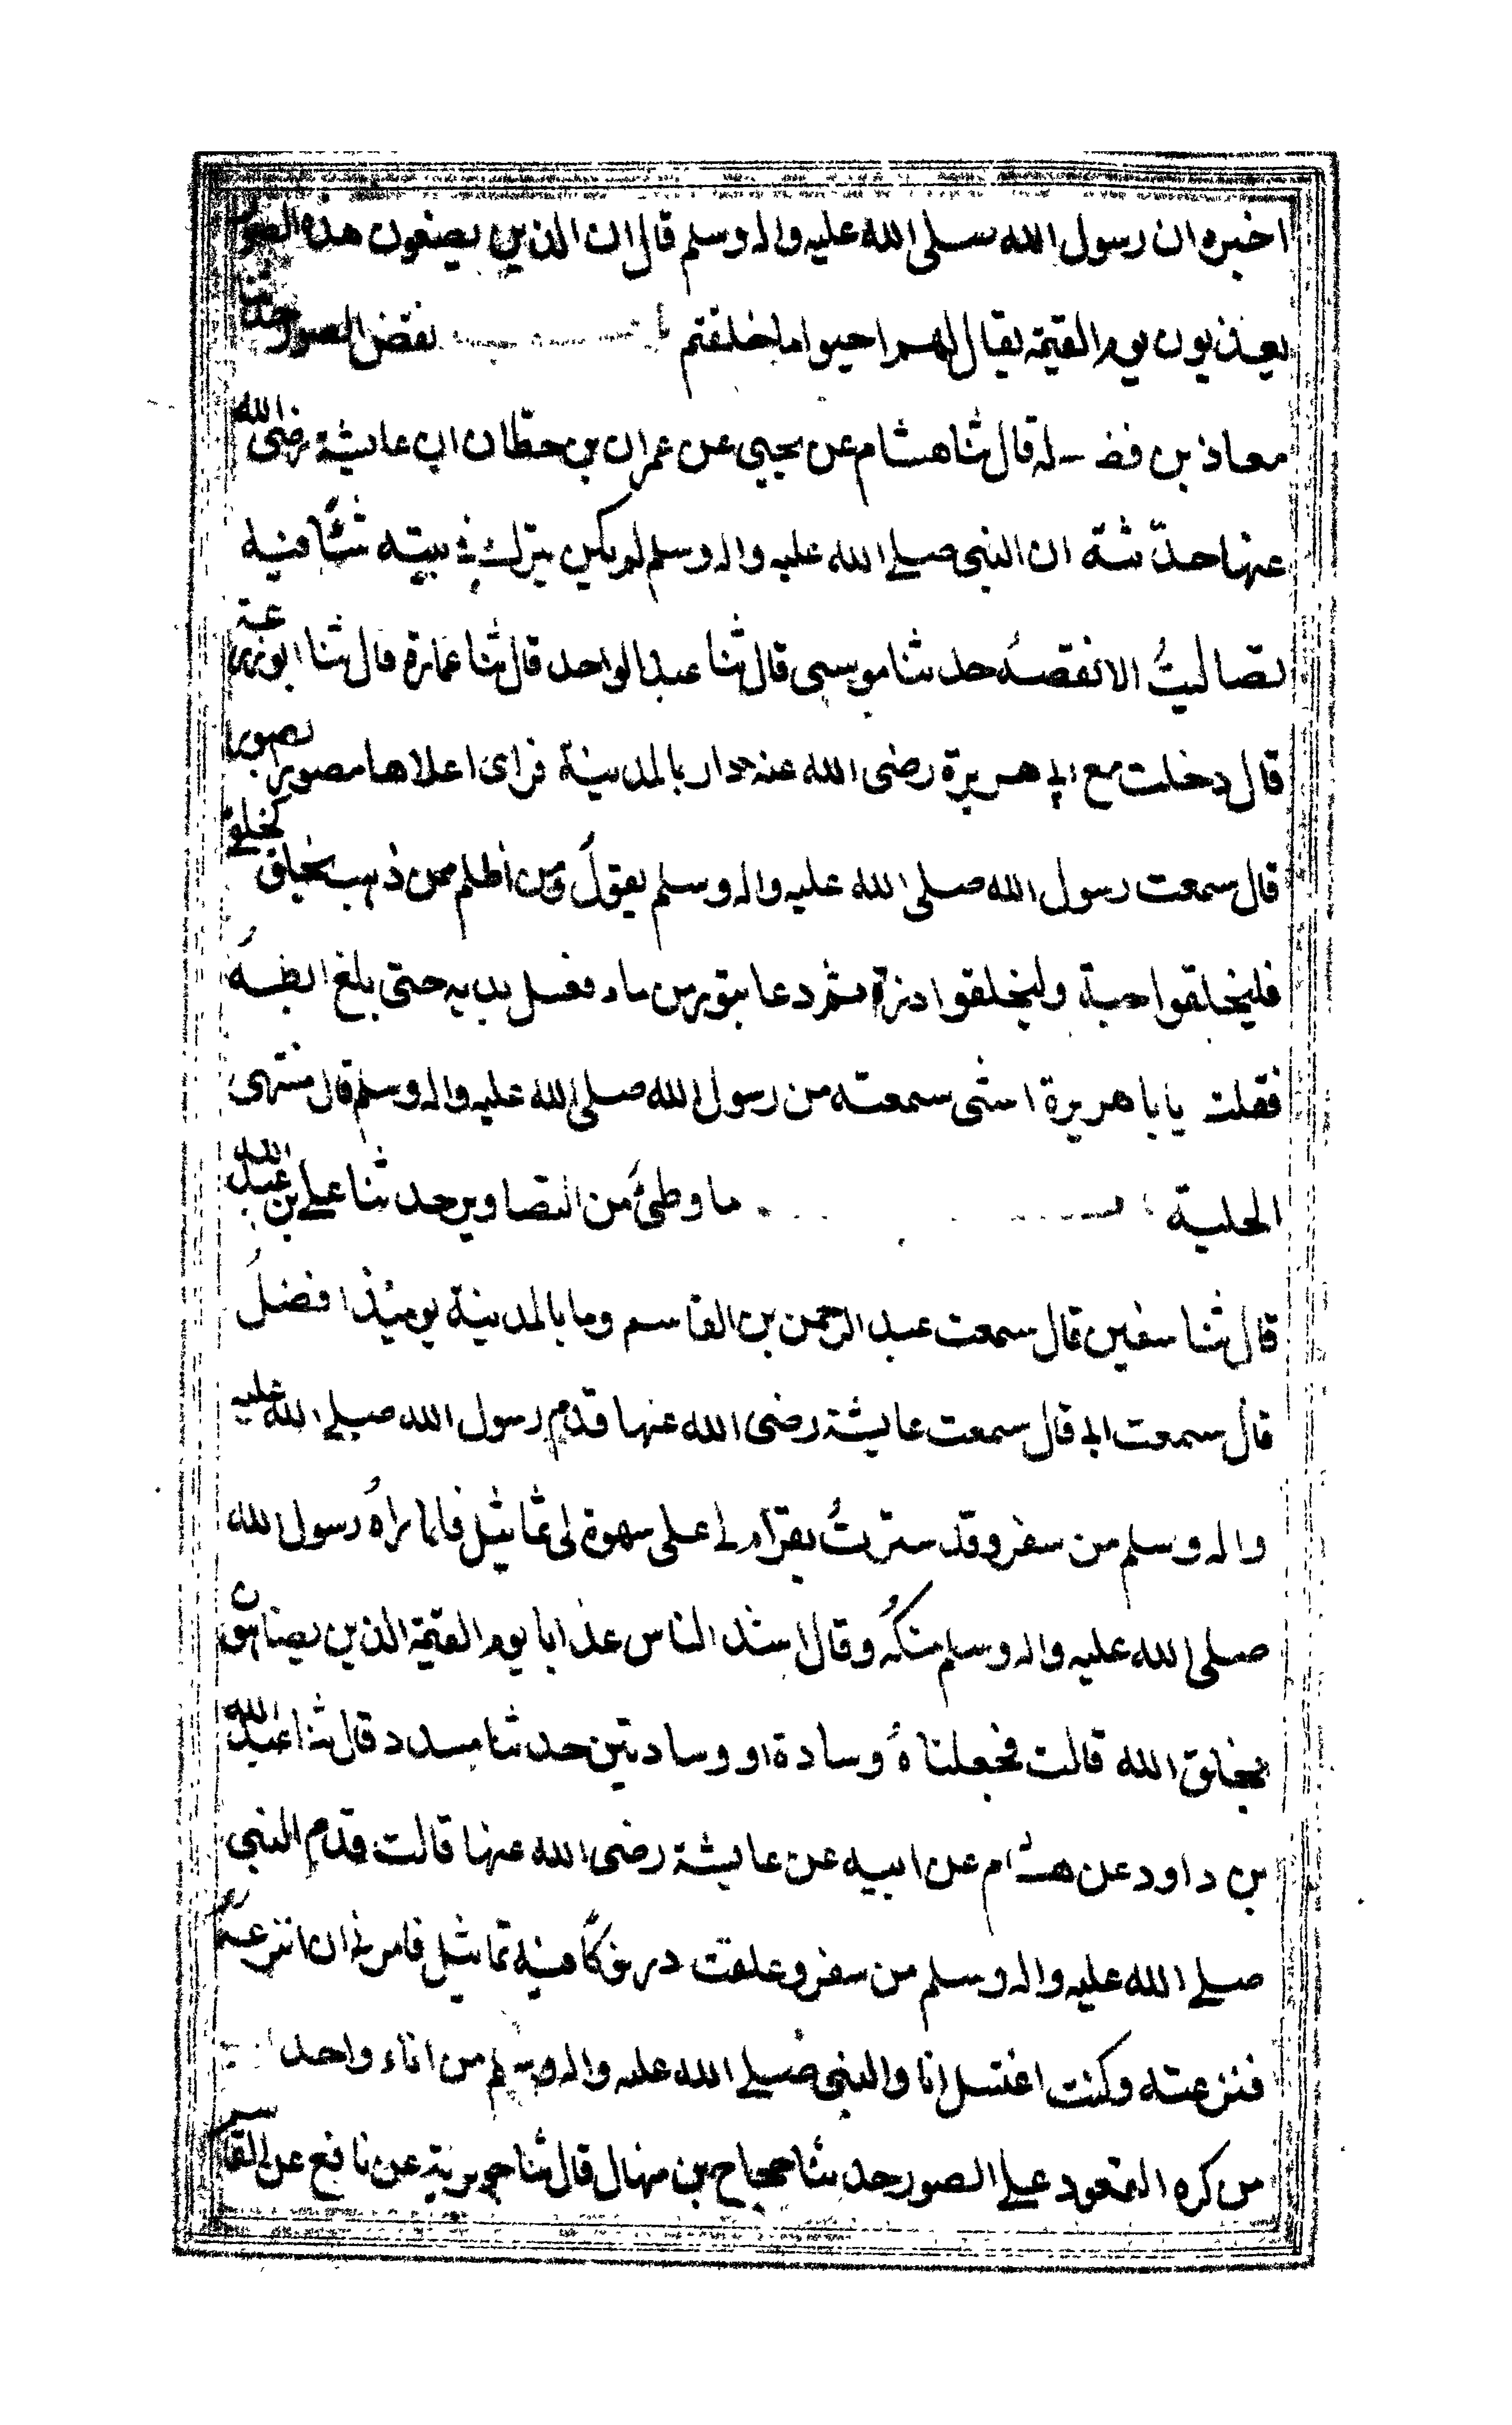 اخبره ان رسول الله صلى الله عليه واله وسلم قال ان الذين يصنعون هذه الصور
يعذبون يوم القيمة يقال لهم احيوا ما خلقتم نقض الصور حدثنا
معاذ بن فضـ ـلة قال ثنا هشام عن يحيى عن عمران بن حطان ان عايشة رضى الله
عنها حدّثته ان النبى صلى الله عليه واله وسلم لم يكن يترك فى بيته شئًا فيه
تصاليبُ الا نقضه حدثنا موسى قال ثنا عبد الواحد قال ثنا عمارة قال ثنا ابو زرعة
قال دخلت مع ابى هريرة رضى الله عنه دار بالمدينة فراى اعلاها مصور يصور
قال سمعت رسول الله صلى الله عليه واله وسلم يقولُ ومن اظلم ممن ذهب يخلق كخلقى
فليخلقوا حبة وليخلقوا ذرة ثم دعا بتور من ماء فغسل يديه حتى بلغ ابطهُ
فقلت يابا هريرة اشئ سمعته من رسول الله صلى الله عليه واله وسلم قال منتهى
الحلية ما وطئ من التصاوير حدثنا على بن عبد الله
قال ثنا سفين قال سمعت عبد الرحمن بن القاسم وما بالمدينة يوميذ افضلُ
قال سمعت ابى قال سمعت عايشة رضى الله عنها قدم رسول الله صلى الله عليه
واله وسلم من سفر وقد سترتُ بقرام لى على سهوة لى تماثيل فلما راهُ رسول الله
صلى الله عليه واله وسلم هتكهُ وقال اشد الناس عذابا يوم القيمة الذين يضاهون
بخلق الله قالت فجعلناهُ وسادة او وسادتين حدثنا مسدد قال ثنا عبد الله
بن داود عن هشام عن ابيه عن عايشة رضى الله عنها قالت قدم النبى
صلى الله عليه واله وسلم من سفر وعلقت درنوكًا فيه تماثيل فامرنى ان انزعهُ
فنزعته وكنت اغتسل انا والنبى صلى الله عليه واله وسلم من اناء واحد
من كره القعود على الصور حدثنا حجاج بن منهال قال ثنا جويرية عن نافع عن القاسم